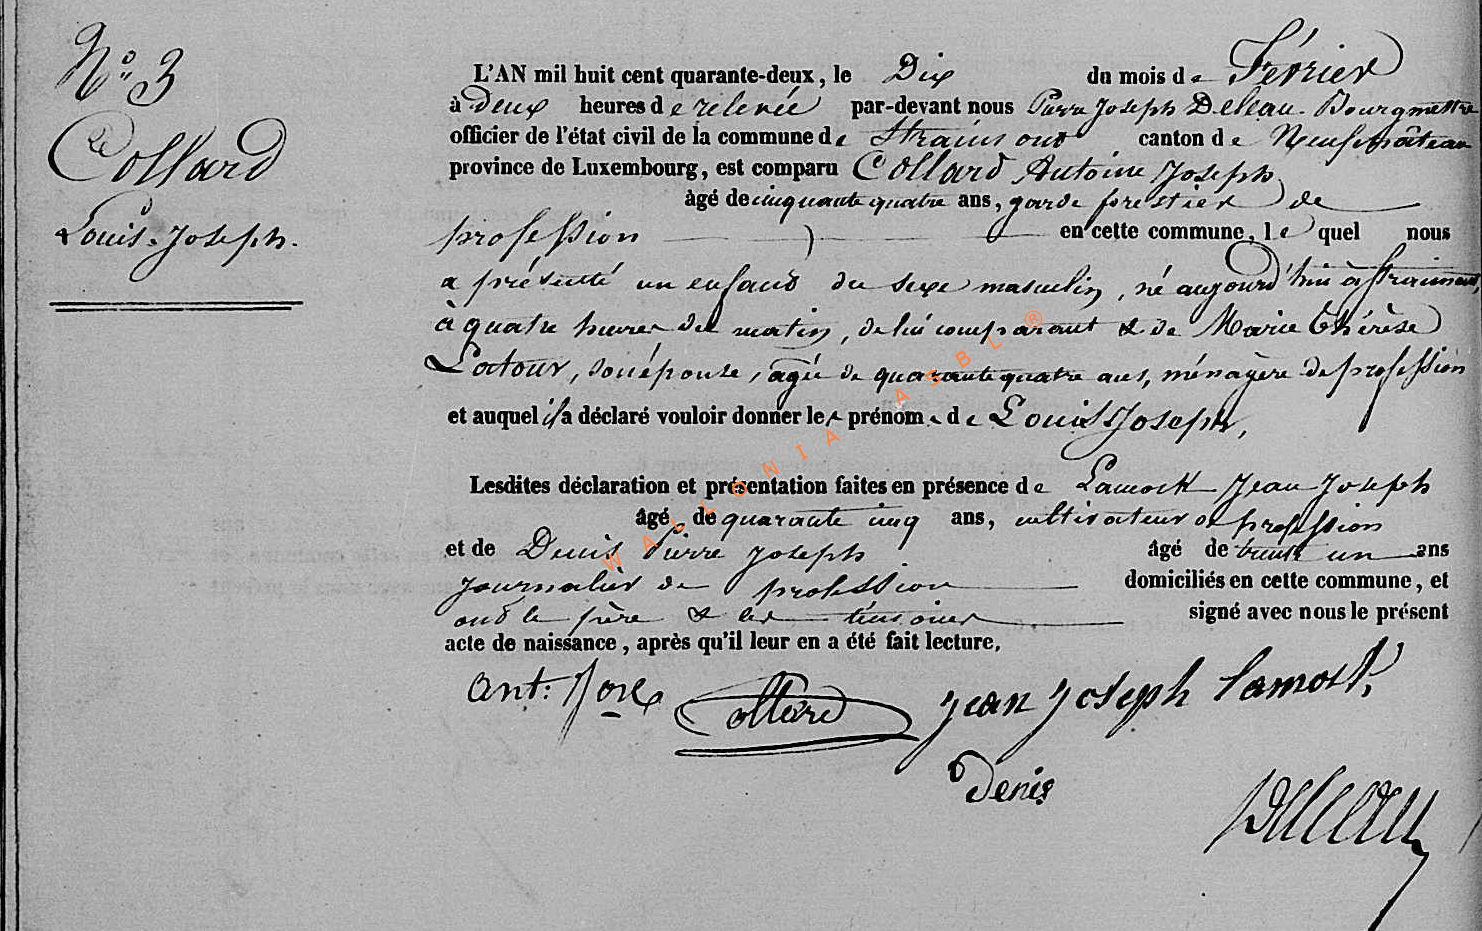 N° 3
Collard
Louis-Joseph.
L'AN mil huit cent quarante-deux, le Dix du mois de Février
à deux heures de relevée par-devant nous Pierre Joseph Deleau Bourgmestre
officier de l'état civil de la commune de Straimont canton de Neufchâteau
province de Luxembourg, est comparu Collard Antoine Joseph
âgé de cinquante quatre ans, garde forestier de
profession en cette commune, le quel nous
a présenté un enfant du sexe masculin, né aujourd'hui à Straimont,
à quatre heures du matin, de lui comparant & de Marie Thérèse
Latour, son épouse, agée de quarante quatre ans, ménagère de profession
et auquel il a déclaré vouloir donner les prénoms de Louis Joseph,
Lesdites déclaration et présentation faites en présence de Lamock Jean Joseph
âgé de quarante cinq ans, cultivateur de profession
et de Denis Pierre Joseph âgé de trente un ans
journalier de profession domiciliés en cette commune, et
ont le père & les témoins signé avec nous le présent
acte de naissance, après qu'il leur en a été fait lecture.
Ant: Jose Collard Jean Joseph Lamock
Denis
Deleau
WALLONIA ASBL ®